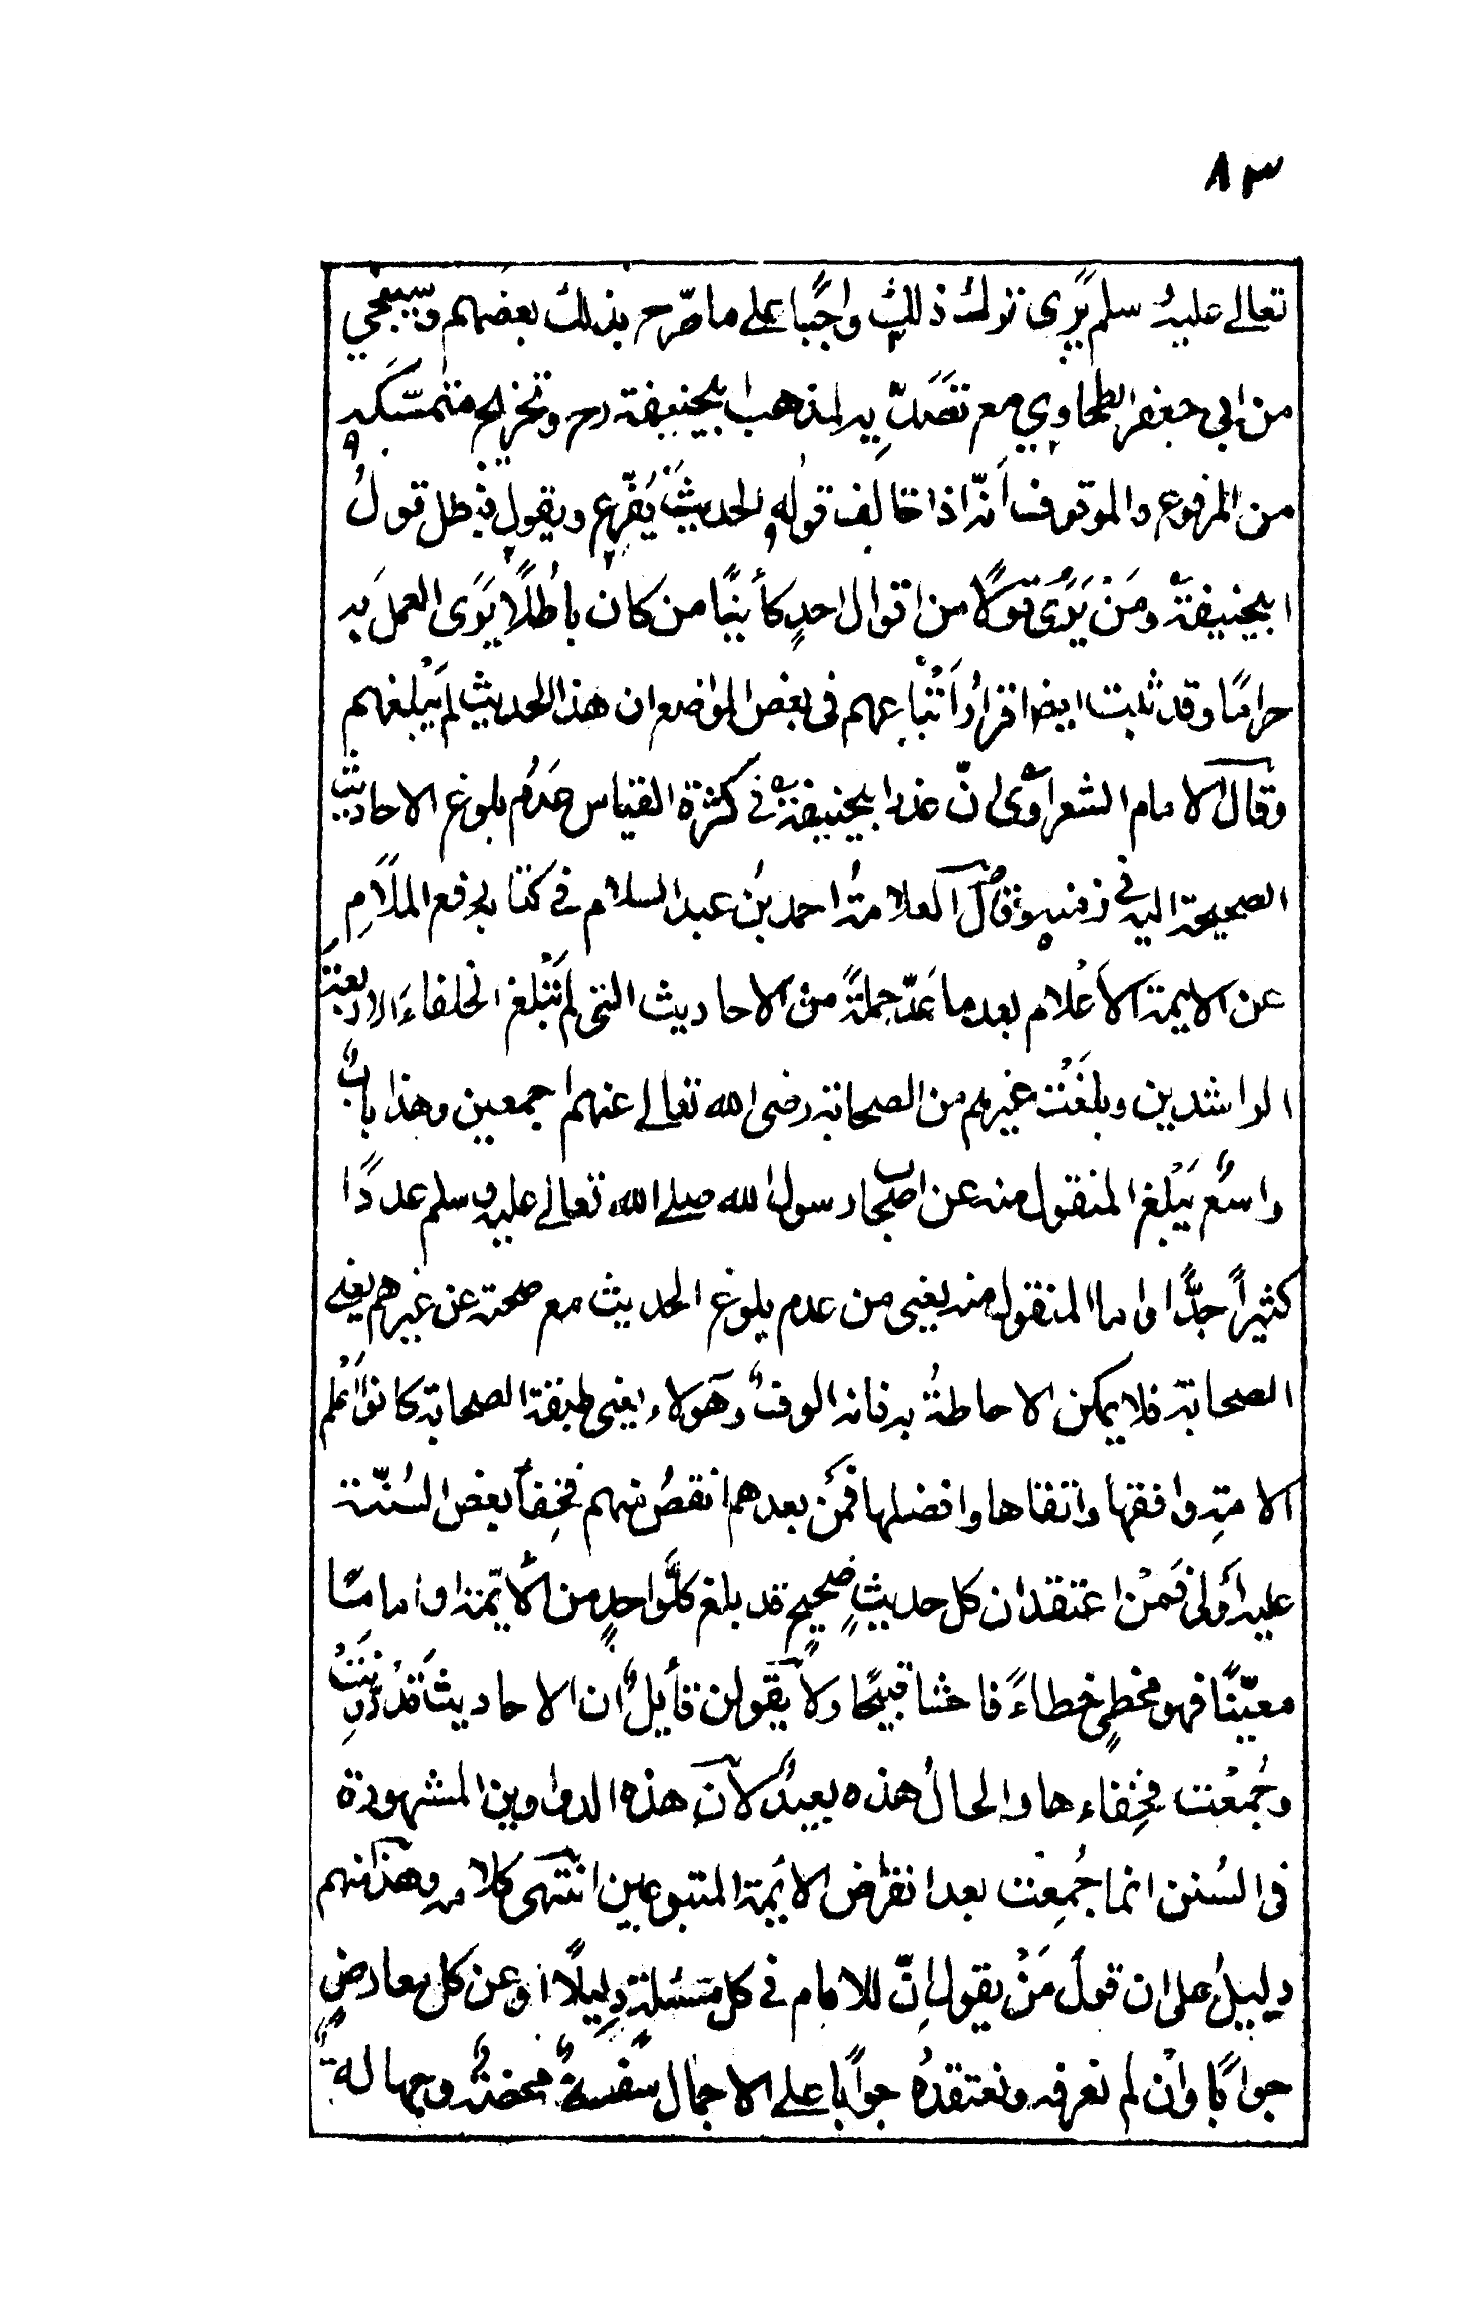 ٨٣
تعالے عليه سلم يَرى تركَ ذلك واجبًا علے ما صّرح بذلك بعضهم وسيجي
من ابی جعفر الطحاوي مع تصَدّيه لمذهب ابيحنيفة رح وتخريج متمسّكه
من المرفوع والموقوف انّه اذا خالف قوله الحديثَ يُفَرِّع ويقول فبطل قولُ
ابيحنيفة ومَنْ يَرَى قولًا من اقوال احدٍ كأينًا من كان باطلًا يَرَى العمل به
حرامًا وقد ثبت ايضا اقرارُ اَتْباعهم فی بعض المواضع ان هذا الحديث لم يَبلغهم
وقال الامام الشعراوی انّ عذر ابيحنيفة فے كثرة القياس عَدمُ بلوغ الاحاديث
الصحيحة اليه فی زمنه وقال العلامةُ احمد بنُ عبد السلام فے كتابه رفع الملَامِ
عن الايمة الأعْلام بعد ما عَدّ جملةً من الاحاديث التی لم تَبْلغ الخلفاءَ الاربعةَ
الراشدين وبلغَتْ غيرهم من الصحابة رضی الله تعالے عنهم اجمعين وهذا بابٌ
واسعٌ يَبْلغ المنقول منه عن اصحاب رسول الله صلے الله تعالے عليه وسلم عددًا
كثيراً جدًّا واما المنقول منه يعنی من عدم بلوغ الحديث مع صحته عن غيرهم يعنے
الصحابة فلا يمكن الاحاطةُ به فانه الوفٌ وهولاء يعنی طبقة الصحابة كانوا اَعْلم
الامةِ وافقهها واتقاها وافضلها فمَن بعدهم انقصُ منهم فخِفاُ بعض السُنّة
عليه اَولٰی فَمنْ اعتقد ان كل حديثٍ صحيحٍ قد بلغ كلَّ واحدٍ من الائمّة او امامًا
معيّنًا فهو مخطیٍ خطاءً فاحشا قبيحًا ولا يقولن قايلٌ ان الاحاديثَ قدْ دُوِّنَتْ
وجُمعْت فخِفاءها والحالُ هذه بعيدٌ لانّ هذه الدواوين المشهورة
فی السُنن انما جُمعْت بعد انقراض الايمة المتبوعين انتهی كلامه وهذا منهم
دليلُ علی ان قولَ مَنْ يقول اِنّ للامام فے كل مسئلة دليلًا او عن كل معارضٍ
جوابًا وان لم نعرفه ونعتقدُه جوابا علے الاجمال سفسةٌ محضةٌ وجهالةٌ